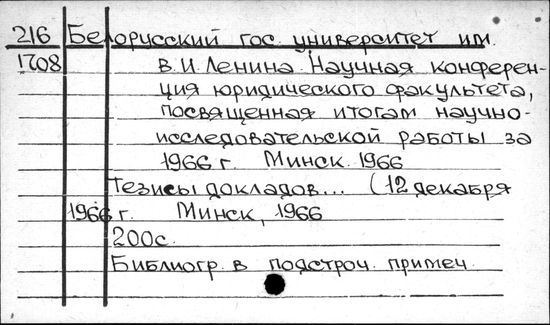 216 Белорусский гос. университет им.
1708 В.И.Ленина. Научная конферен-
ция юридического факультета,
посвященная итогам научно-
исследовательской работы за
1966 г. Минск. 1966
Тезисы докладов... (12 декабря
1966 г. Минск, 1966
200с.
Библиогр. в подстроч. примеч.